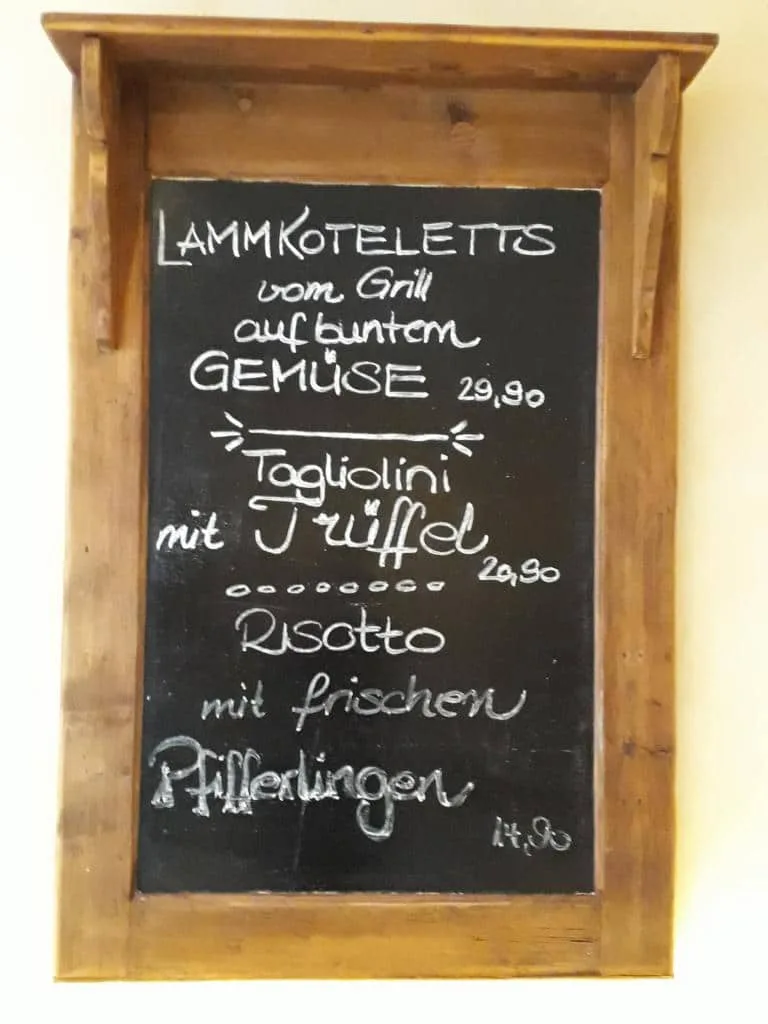 LAMMKOTELETTS
vom Grill
auf buntem
GEMÜSE 29,90
Tagliolini
mit Trüffel
20,90
Risotto
mit frischen
Pfifferlingen
14,90